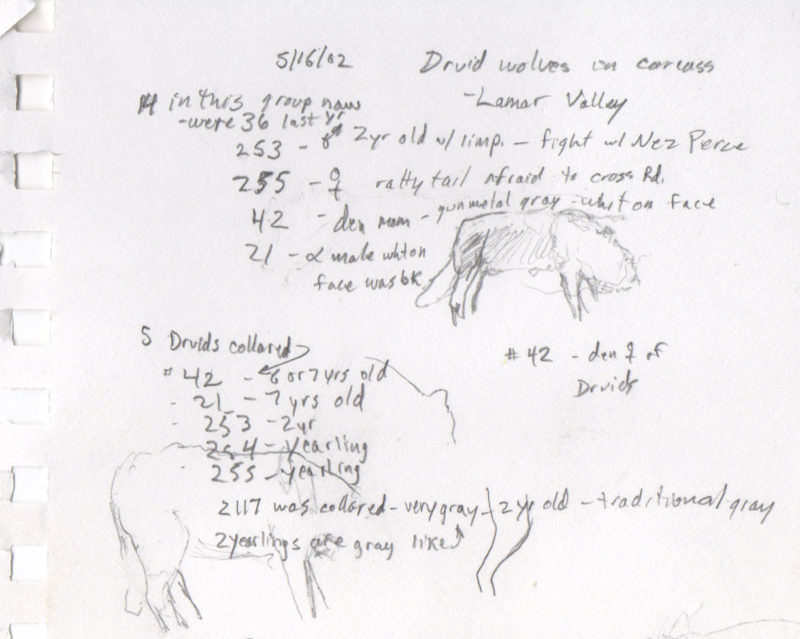 5/16/02
Druid wolves on carcass
-Lamar Valley
14 in this group now
-were 36 last yr
253 - ♂ 2yr old w/ limp. - fight w/ Nez Perce
255 - ♀ ratty tail Afraid to cross Rd.
42 - den mom - gunmetal gray - wht on face
21 - α male wht on
face was bk
5 Druids collared
# 42 - 6 or 7 yrs old
- 21 - 7 yrs old
- 253 - 2yr
- 254 - yearling
- 255 - yearling
#42 - den ♀ of
Druids
217 was collared - very gray - 2 yr old - traditional gray
2 yearlings are gray like